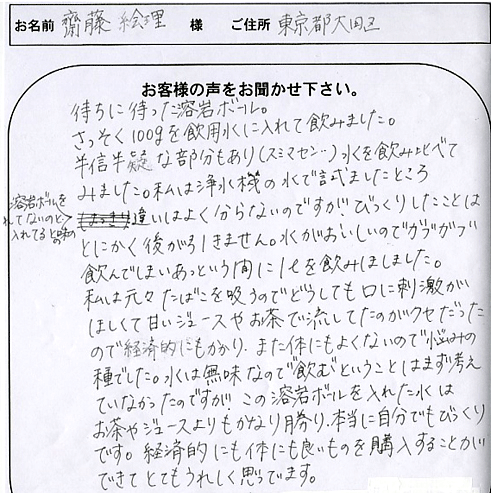 お名前 齋藤 絵理 様 ご住所 東京都大田区
お客様の声をお聞かせ下さい。
待ちに待った溶岩ボール。
さっそく100gを飲用水に入れて飲みました。
半信半疑な部分もあり(スミマセン…)水を飲み比べて
みました。私は浄水機の水で試ましたところ
溶岩ボールを
れてないのと
入れてると味の
違いはよく分らないのですが、びっくりしたことは
とにかく後が引きません。水がおいしいのでガブガブ
飲んでしまいあっという間に1ℓを飲みほしました。
私は元々たばこを吸うのでどうしても口に刺激が
ほしくて甘いジュースやお茶で流してたのがクセだった
ので経済的にもかかり、また体にもよくないので悩みの
種でした。水は無味なので"飲む"ということはまず考え
ていなかったのですがこの溶岩ボールを入れた水は
お茶やジュースよりもかなり勝り、本当に自分でもびっくり
です。経済的にも体にも良いものを購入することが
できてとてもうれしく思ってます。